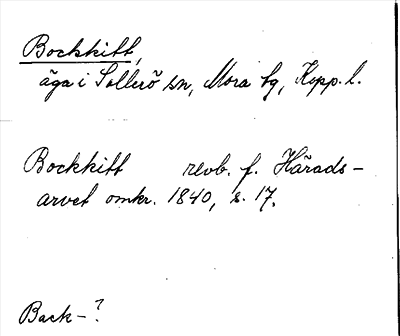 Bockkitt,
äga i Sollerö sn, Mora tg, Kopp. l.
Bockkitt revb. f. Härads-
arvet omkr. 1840, s. 17.
Back-?